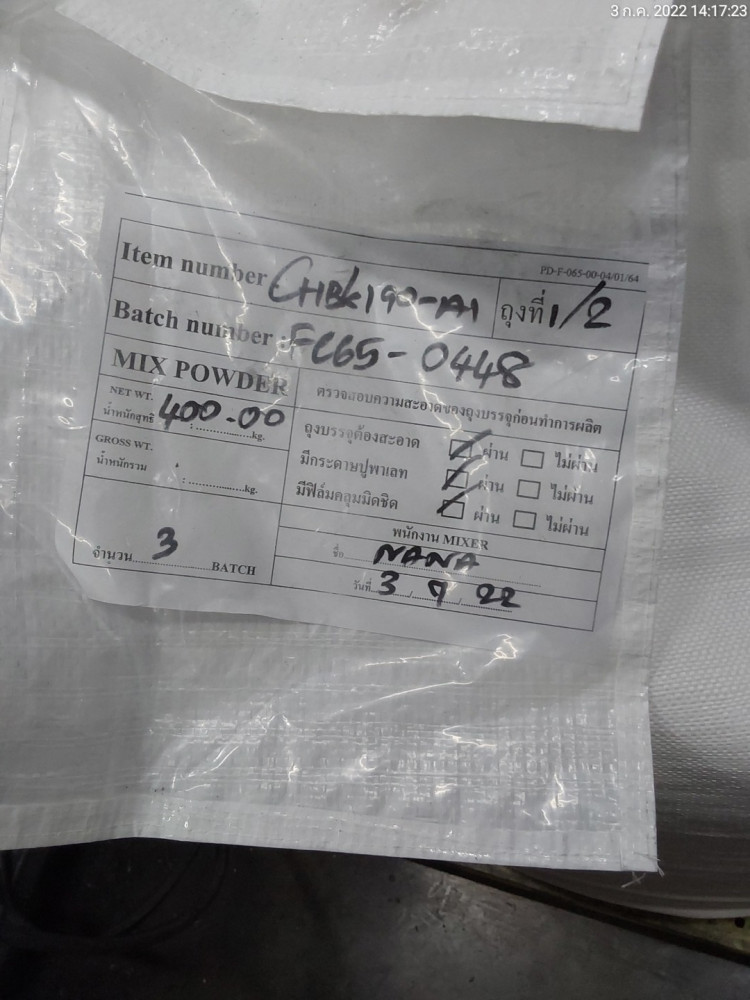 3 ก.ค. 2022 14:17:23
PD-F-065-00-04/01/64
Item number CHBK190-1A1 ถุงที่ 1/2
Batch number : FC65-0448
MIX POWDER
NET WT.
น้ำหนักสุทธิ : 400.00 kg.
GROSS WT.
น้ำหนักรวม : ...............kg.
จำนวน 3 BATCH
ตรวจสอบความสะอาดของถุงบรรจุก่อนทำการผลิต
ถุงบรรจุต้องสะอาด ผ่าน ไม่ผ่าน
มีกระดาษปูพาเลท ผ่าน ไม่ผ่าน
มีฟิล์มคลุมมิดชิด ผ่าน ไม่ผ่าน
พนักงาน MIXER
ชื่อ NANA
วันที่ 3 / 7 / 22